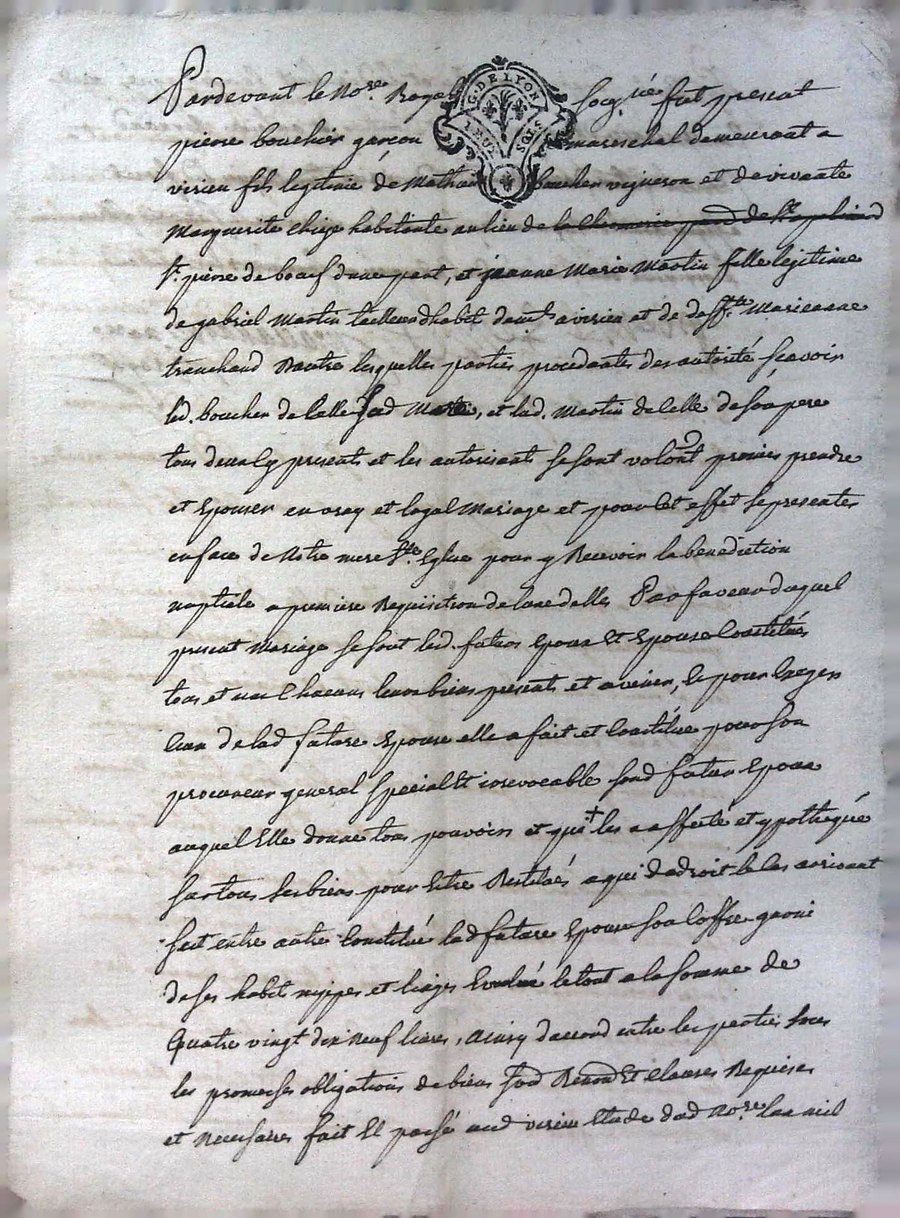 Pardevant le No.re Royal sosg.né fut present
G. DE LYON
DEUX SOLS
pierre boucher garçon mareschal demeurant a
virieu fils legitime de Mathieu boucher vigneron et de vivante
Marguerite Chieze habitante au lieu de la
St. pierre de boeuf d'une part, et jeanne Marie Martin fille legitime
de gabriel Martin tailleur dhabit dem.t a virieu et de deff.te Marieanne
tranchand Dautre lesquelles parties procedantes des autorité scavoir
led. boucher de celle de sad Mere, et lad. Martin de celle de son pere
tous deux Cy presents et les autorisants se sont volont promis prendre
et Epouser en vray et legal Mariage et pour Cet effet se presenter
en face de Notre mere Ste. Eglise pour y Recevoir la benediction
nuptiale a premiere Requisition de lune delles Par faveur duquel
present Mariage se sont led. futurs Epoux Et Epouse Constitués
tous et un Chacuns leurs biens presents et a venir, le pour Exiger
Ceux de lad future Epouse elle a fait et Constitué pour son
procureur general special Et irrevocable sond futur Epoux
auquel Elle donne tous pouvoirs et qui + les a affecté et ypothequé
sur tous ses biens pour Estre Restitués a qui de droit le Cas arrivant
sest entre autre Constitué lad future Epouse son Coffre garni
de ses habit nippes et linges Evalué le tout a la somme de
Quatre vingt dix Neuf livres, Ainsy daccord entre les parties sous
les promesses obligations de biens soud Renond Et Clauses Requises
et Necessaires fait Et passé aud virieu Etude dud No.re Lan mil